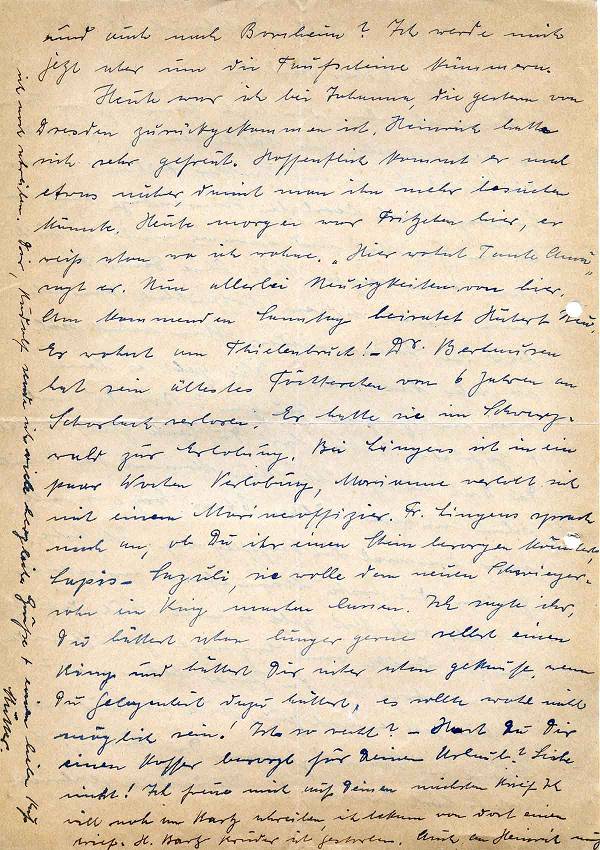 und auch nach Borsheim? Ich werde mich
jetzt aber um die Taufsteine kümmern.
Heute war ich bei Johanna, die gestern von
Dresden zurückgekommen ist. Heinrich hatte
sich sehr gefreut. Hoffentlich kommt er mal
etwas näher, damit man ihn mehr besuchen
könnte. Heute morgen war Fritzchen hier, er
weiß schon wo ich wohne. „Hier wohnt Tante Anna"
sagt er. Nun allerlei Neuigkeiten von hier.
Am kommenden Samstag heiratet Hubert
Er wohnt am Thielenbruch! – Dr.
hat sein ältestes Töchterchen von 6 Jahren an
Scharlach verloren. Er hatte sie im Schwarz-
wald zur Erholung. Bei Lüngens ist in ein
paar Wochen Verlobung, Marianne verlobt sich
mit einem Marineoffizier. Fr. Lüngens sprach
mich an, ob Du ihr einen Stein besorgen könntest,
Lapis-Lazuli, sie wolle dem neuen Schwieger-
sohn ein Ring machen lassen. Ich sagte ihr,
Du hättest schon länger gerne selbst einen
Ring und hättest Dir sicher schon gekauft wenn
Du Gelegenheit dazu hättest, es sollte wohl nicht
möglich sein! Ist so recht? – Hast Du Dir
einen Koffer besorgt für Deinen Urlaub?
nicht! Ich freue mich auf Deinen nächsten Brief. Ich
will noch an Hartz schreiben, ich bekam von dort einen
Brief. H. Hartz Bruder ist gestorben. Auch an Heinrich muß
ich noch schreiben. Dir, Rudolf sende ich viele herzliche Grüße + einen lieben Kuß
Mutter.